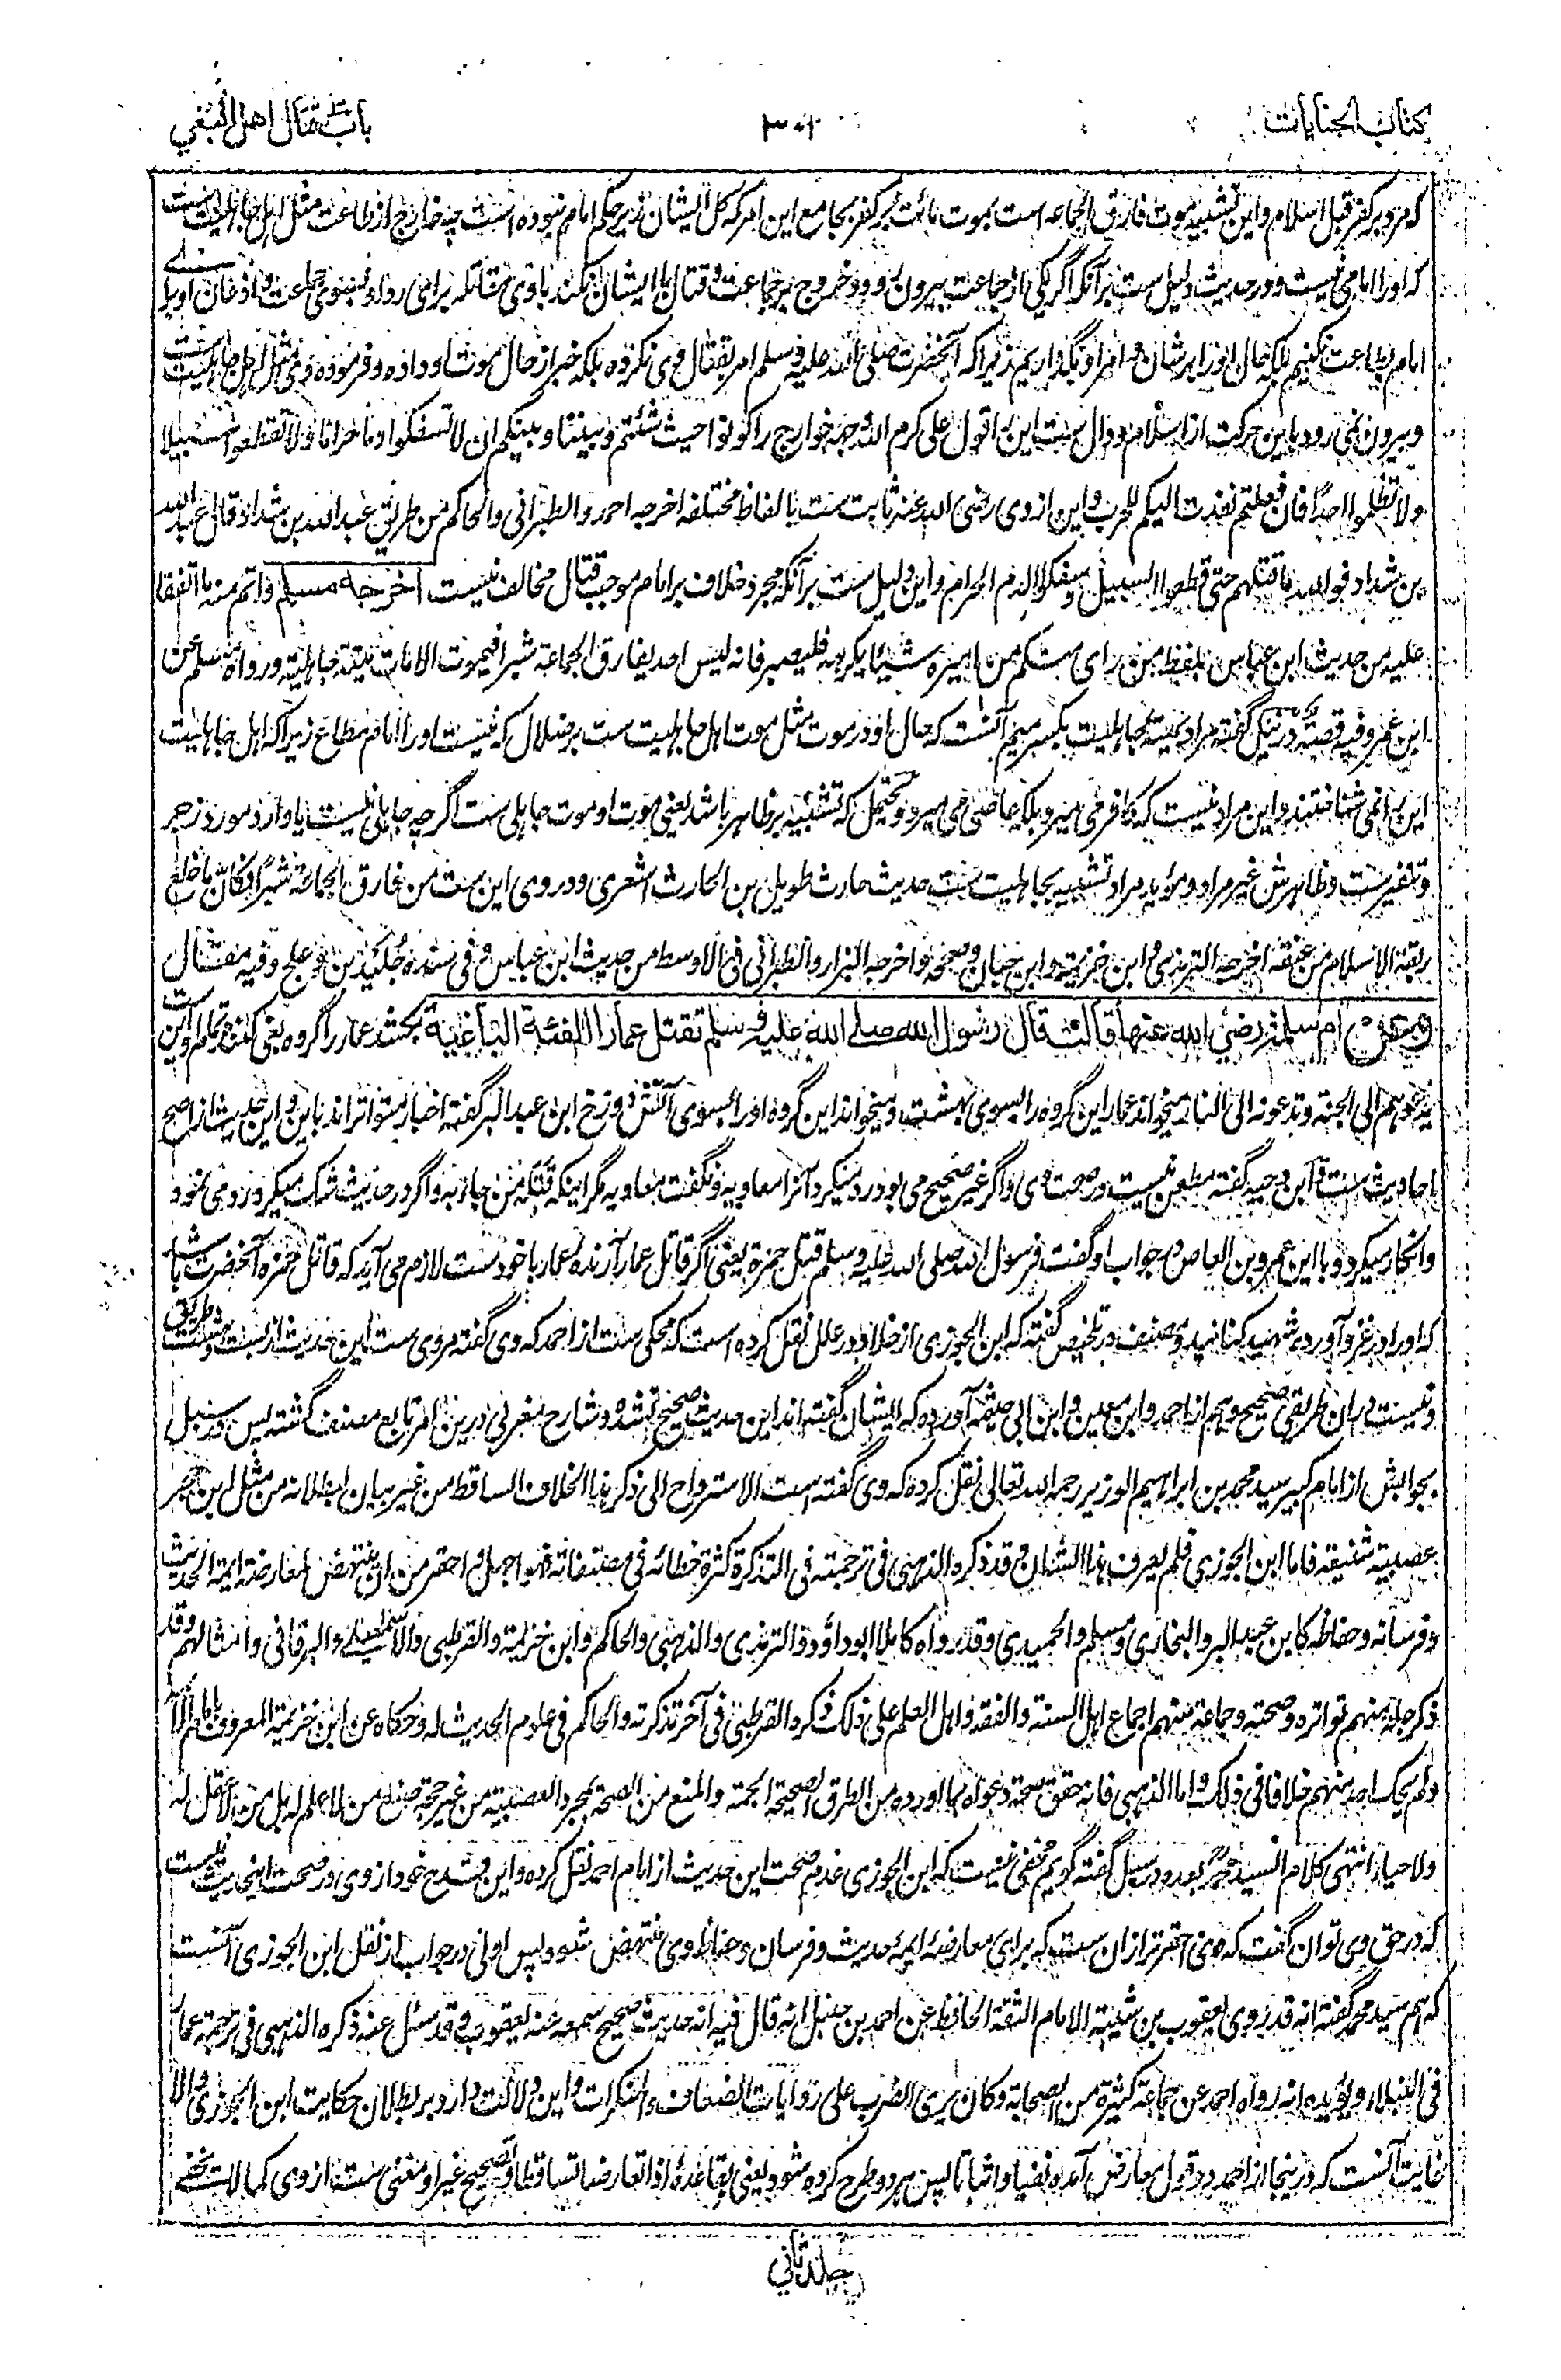 کتاب الجنایات
۳۰۲
باب قتال اهل البغی
که مرد بر کفر قبل اسلام و این تشبیه موت فارق الجماعه است بموت مائت بر کفر بجامع این امر که کل ایشان زیر حکم امام نبوده است چه خارج از طاعت مثل اهل جاهلیت ست
که او را امامی نیست و در حدیث دلیل ست بر آنکه اگر یکی از جماعت بیرون رود و خروج بر جماعت و قتال با ایشان نکند با وی مقاتله برای رد او بسوی جماعت و اذعان او برای
امام بطاعت نکنیم بلکه حال او را بر شان و امر او بگذاریم زیرا که آنحضرت صلی الله علیه وسلم امر بقتال وی نکرده بلکه خبر از حال موت او داده و فرموده وی مثل اهل جاهلیت ست
و بیرون نمی رود باین حرکت از اسلام و دال ست این را قول علی کرم الله وجهه خوارج را کونوا حیث شئتم و بیننا و بینکم ان لا تسفکوا دما حراما و لا تقطعوا سبیلا
و لا تظلموا احدا فان فعلتم نفذت الیکم للحرب و این از وی رضی الله عنه ثابت ست بالفاظ مختلفه اخرجه احمد والطبرانی والحاکم من طریق عبد الله بن شداد قال عبد الله
بن شداد فوالله ما قتلهم حتی قطعوا السبیل و سفکوا الدم الحرام و این دلیل ست بر آنکه مجرد خلاف بر امام موجب قتال مخالف نیست اخرجه مسلم واتم منه ما اتفقا
علیه من حدیث ابن عباس بلفظ من رای منکم من امیره شیئا یکرهه فلیصبر فانه لیس احد یفارق الجماعة شبرا فیموت الا مات میتة جاهلیة و رواه مسلم عن
ابن عمر و فیه قصة در نیل گفته مراد بمیته جاهلیت بکسر میم آنست که حال او در موت مثل موت اهل جاهلیت ست بر ضلال که نیست او را امام مطاع زیرا که اهل جاهلیت
این را نمی شناختند و این مراد نیست که کافر می میرد بلکه عاصی می میرد و یحتمل که تشبیه بر ظاهر باشد یعنی موت او موت جاهلی ست اگرچه جاهلی نیست یا وارد مورد زجر
و تنفیر ست و ظاهرش غیر مراد و مؤید مراد تشبیه بجاهلیت ست حدیث حارث طویل بن الحارث اشعری و در وی این ست من فارق الجماعة شبرا فکانما خلع
ربقة الاسلام من عنقه اخرجه الترمذی و ابن خزیمة و ابن حبان و صححه و اخرجه البزار والطبرانی فی الاوسط من حدیث ابن عباس و فی سنده خلید بن دعلج و فیه مقال
وعن ام سلمة رضی الله عنها قالت قال رسول الله صلی الله علیه وسلم تقتل عمارا الفئة الباغیة بکشد عمار را گروه بغی کننده
یدعوهم الی الجنة و یدعونه الی النار میخواند عمار این گروه را بسوی بهشت و میخواند این گروه او را بسوی آتش دوزخ ابن عبد البر گفته اخبار متواتر اند باین و این حدیث از اصح
احادیث ست و ابن دحیه گفته مطعن نیست در صحت وی و اگر غیر صحیح می بود رد میکرد آنرا معاویه و نگفت معاویه مگر اینکه قتله من جاء به و اگر در حدیث شک میکرد رد می نمود
و انکار میکرد و با ابن عمرو بن العاص و جواب او گفت فرسول الله صلی الله علیه وسلم قتل حمزة یعنی اگر قاتل عمار آرنده عمار با خود ست لازم می آید که قاتل حمزه آنحضرت باشد
که او را در غزو آورده شهید کنانید و مصنف در تلخیص گفته که ابن الجوزی از خلال در علل نقل کرده است که محکی ست از احمد که وی گفته مروی ست این حدیث از بست و هشت طریق
و نیست دران طریقی صحیح و هم از احمد و ابن معین و ابن ابی خیثمه آورده که ایشان گفته اند این حدیث صحیح نشده و شارح مغربی درین امر تابع مصنف گشته پس در سبل
بجوابش از امام کبیر سید محمد بن ابراهیم الوزیر رحمه الله تعالی نقل کرده که وی گفته است الاسترواح الی ذکر هذا الخلاف الساقط من غیر بیان ابطلانه من مثل ابن حجر
عصبیة شنیعة فاما ابن الجوزی فلم یعرف هذا الشان و قد ذکره الذهبی فی ترجمته فی التذکرة کثرة خطائه فی مصنفاته فهو اجهل و احقر من ان ینتهض لمعارضة ایمة الحدیث
و فرسانه و حفاظه کابن عبد البر والبخاری و مسلم والحمیدی و قد رواه کاملا ابو داود والترمذی والذهبی والحاکم و ابن خزیمة والقرطبی والاسمعیلی والبرقانی و امثالهم و قد
ذکر جلة منهم تواتره و صحته و جماعة منهم اجماع اهل السنة والفقه و اهل العلم علی ذلک ذکره القرطبی فی آخر تذکرته والحاکم فی علوم الحدیث له و حکاه عن ابن خزیمة المعروف بامام الائمة
و لم یحک احد منهم خلافا فی ذلک و اما الذهبی فانه حقق صحة دعواه بما اورده من الطرق الصحیحة الجمة والمنع من الصحة لمجرد العصبیة من غیر حجة صنیع من لا علم له بل من لا عقل له
و لا حیاء انتهی کلام السید محمد در سبل گفته گویم مخفی نیست که ابن الجوزی عدم صحت این حدیث از امام احمد نقل کرده و این قدح خود از وی در صحت این حدیث نیست
که در حق وی توان گفت که وی احقر تر ازان ست که برای معارضه ایمه حدیث و فرسان و حفاظ وی منتهض شود پس اولی در جواب از نقل ابن الجوزی آنست
که هم سید محمد گفته انه قد روی یعقوب بن شیبة الامام الثقة الحافظ عن احمد بن حنبل انه قال فیه انه حدیث صحیح سمعه عنه یعقوب و قد سئل عنه ذکره الذهبی فی ترجمة عمار
فی النبلاء و یؤیده انه رواه احمد عن جماعة کثیرة من الصحابة و کان یری الضرب علی روایات الضعاف والمنکرات و این دلالت دارد بر بطلان حکایت ابن الجوزی و الا
غایت آنست که درینجا از احمد دو قول معارض آمده نفیا و اثباتا پس هر دو طرح کرده شود یعنی بقاعدهٔ اذا تعارضا تساقطا و تصحیح غیر او مغنی ست از وی کما لا یخفی
جلد ثانی